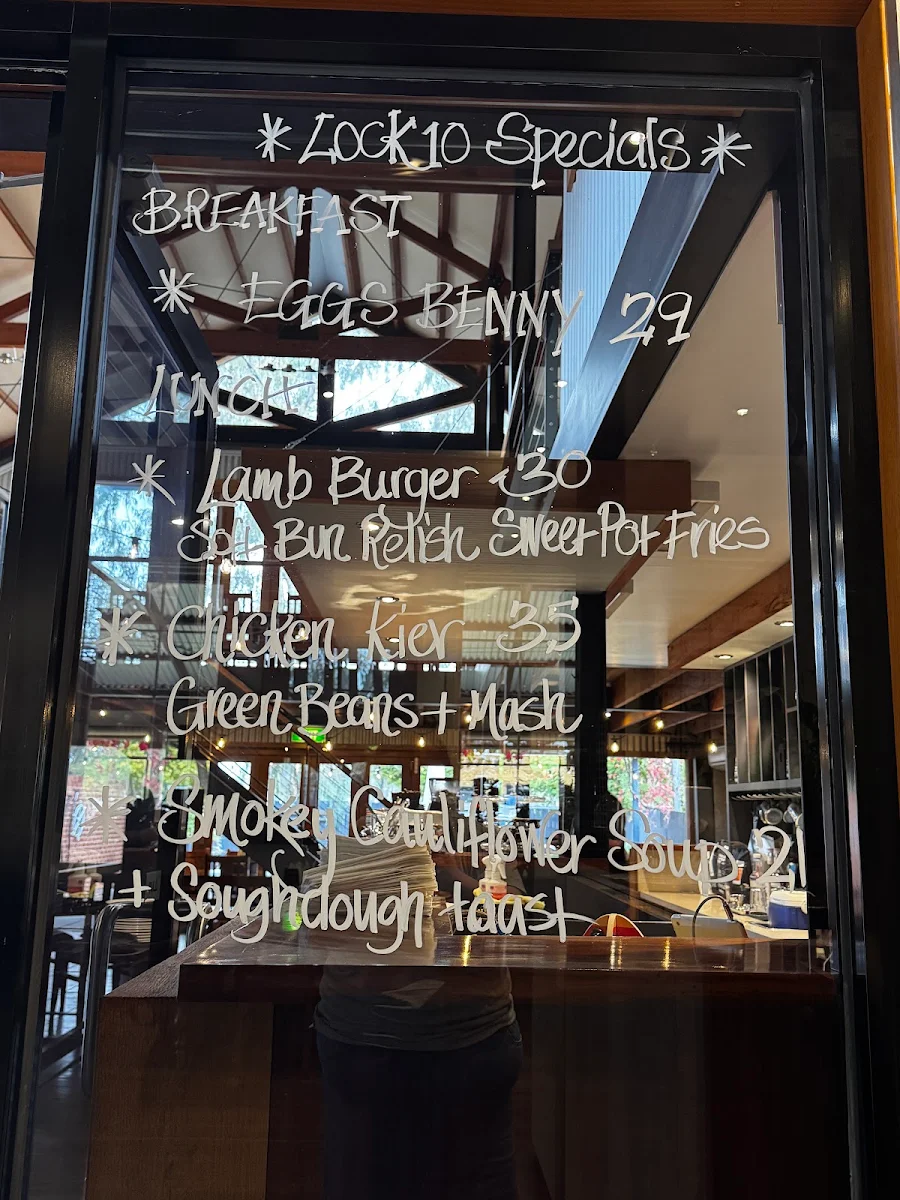 * Lock 10 Specials *
BREAKFAST
* EGGS BENNY 29
LUNCH
* Lamb Burger 30
Soft Bun Relish Sweet Pot Fries
* Chicken Kier 35
Green Beans + Mash
* Smokey Cauliflower Soup 21
+ Soughdough toast